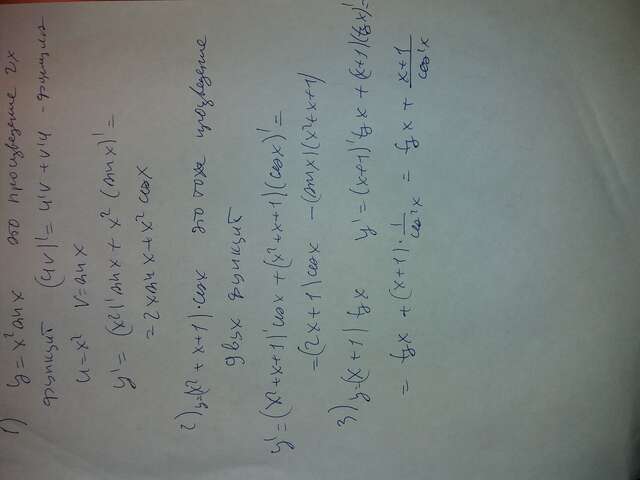 1) y = x² sin x это произведение 2х
функций (uv)' = u'v + v'u - формула
u = x² v = sin x
y' = (x²)' sin x + x² (sin x)' =
= 2x sin x + x² cos x
2) y=(x² + x + 1)·cos x это тоже произведение
двух функций
y' = (x² + x + 1)' cos x + (x² + x + 1)(cos x)' =
= (2x + 1) cos x - (sin x)(x² + x + 1)
3) y=(x + 1) tg x y' = (x + 1)' tg x + (x + 1)(tg x)' =
= tg x + (x + 1) · 1/cos²x = tg x + x + 1/cos²x